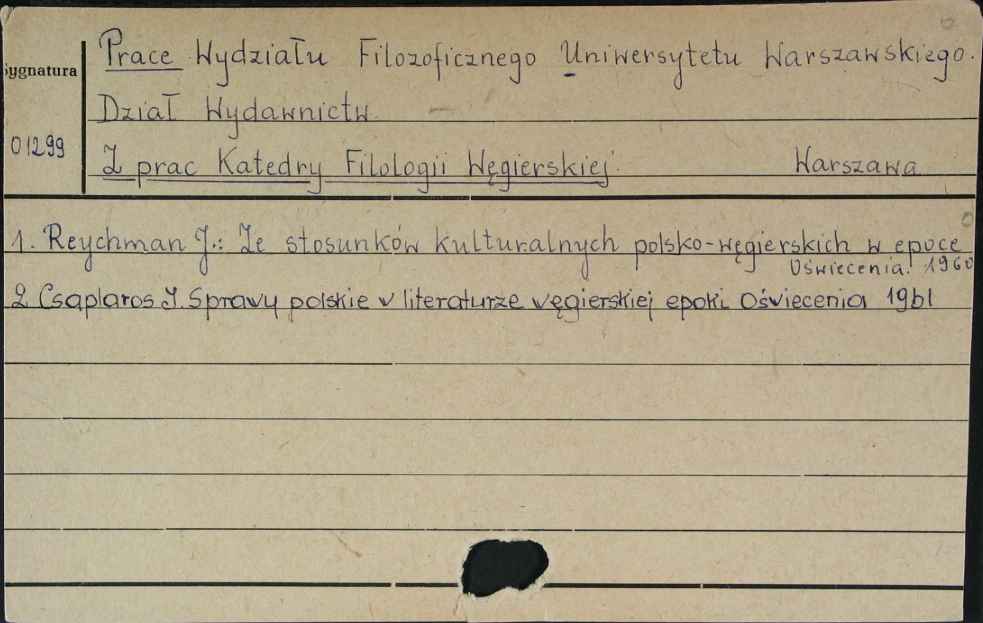 Prace Wydziału Filozoficznego Uniwersytetu Warszawskiego.
Sygnatura
Dział Wydawnictw.
01299
Z prac Katedry Filologii Węgierskiej. Warszawa
1. Reychman J.: Ze stosunków kulturalnych polsko-węgierskich w epoce
Oświecenia. 1960
2 Csaplaros I. Sprawy polskie w literaturze węgierskiej epoki Oświecenia 1961